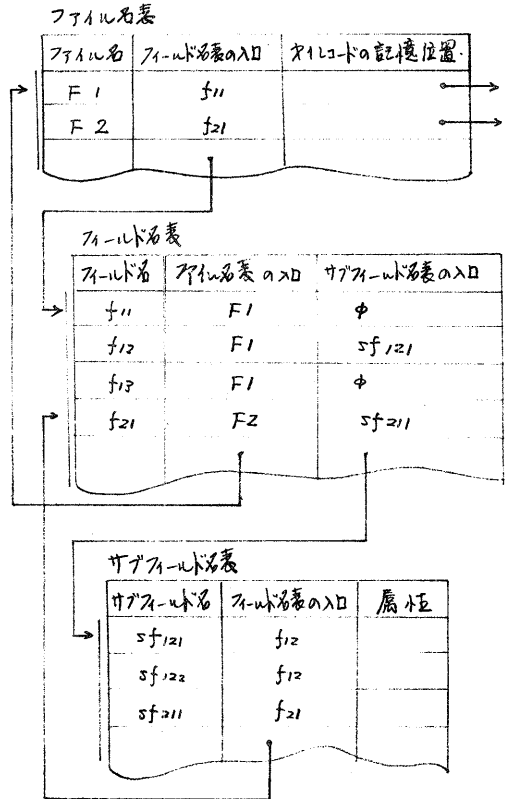 ファイル名表
ファイル名 フィールド名表の入口 オルレコードの記憶位置.
F1 f11
F2 f21
フィールド名表
フィールド名 ファイル名表の入口 サブフィールド名表の入口
f11 F1 φ
f12 F1 sf121
f13 F1 φ
f21 F2 sf211
サブフィールド名表
サブフィールド名 フィールド名表の入口 属性
sf121 f12
sf122 f12
sf211 f21